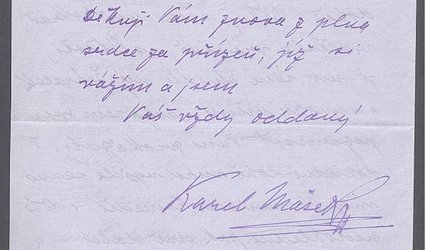 Děkuji Vám znova z plna
srdce za přízeň, jíž si
vážím a jsem
Váš vždy oddaný
Karel Mašek